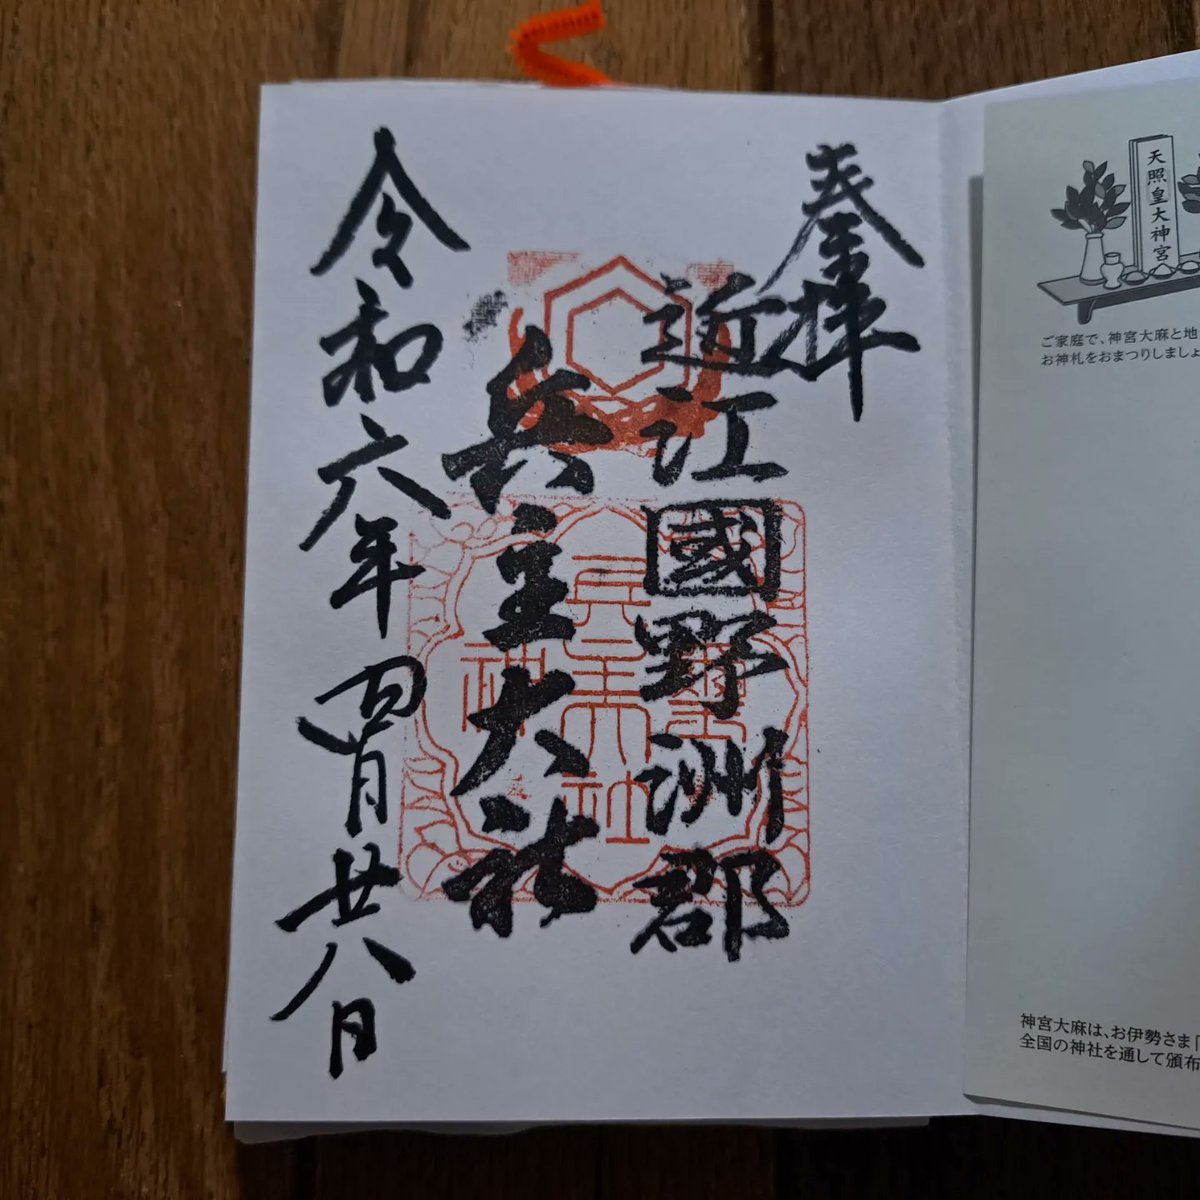 奉拝
近江國野洲郡
兵主大社
令和六年四月廿八日
兵主大社
神璽
天照皇大神宮
ご家庭で、神宮大麻と地
お神札をおまつりしましょ
神宮大麻は、お伊勢さま「
全国の神社を通して頒布